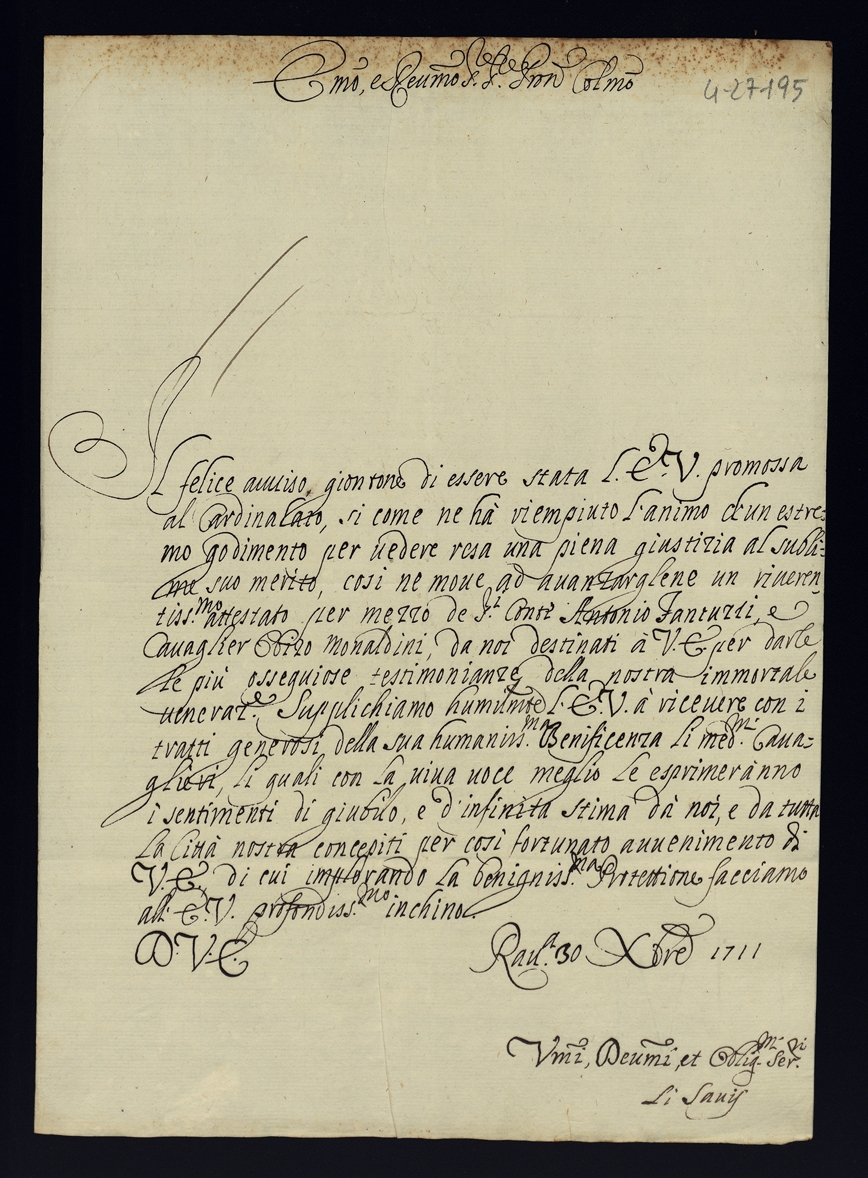 Emo, e Reumo S. S. Prõn Colmo
4-27-195
Il felice auuiso giontone di essere stata l'E. V. promossa
al Cardinalato, si come ne hà riempiuto l'animo d'un estre=
mo godimento per uedere resa una piena giustizia al subli=
me suo merito, cosi ne moue ad auanzarglene un riueren
tiss.mo attestato per mezzo de Sri Conti Antonio Fantuzzi, e
Cauaglier Obizo Monaldini, da noi destinati à V. E. per darle
le più ossequiose testimonianze della nostra immortale
uenerat.e Supplichiamo humilmte l'E. V. à riceuere con i
tratti generosi della sua humaniss.ma Benificenza li med.mi Caua=
glieri, li quali con la uiua uoce meglio le esprimeranno
i sentimenti di giubilo, e d'infinita stima dà noi, e da tutta
la Città nostra concepiti per cosi fortunato auuenimento di
V. E. di cui implorando la benigniss.ma Protettione facciamo
all'E. V. profondiss.mo inchino.
D. V. E. Rau.a 30 Xbre 1711
Vmi, Deumi, et Oblig.mi Ser.ri
Li Sauij